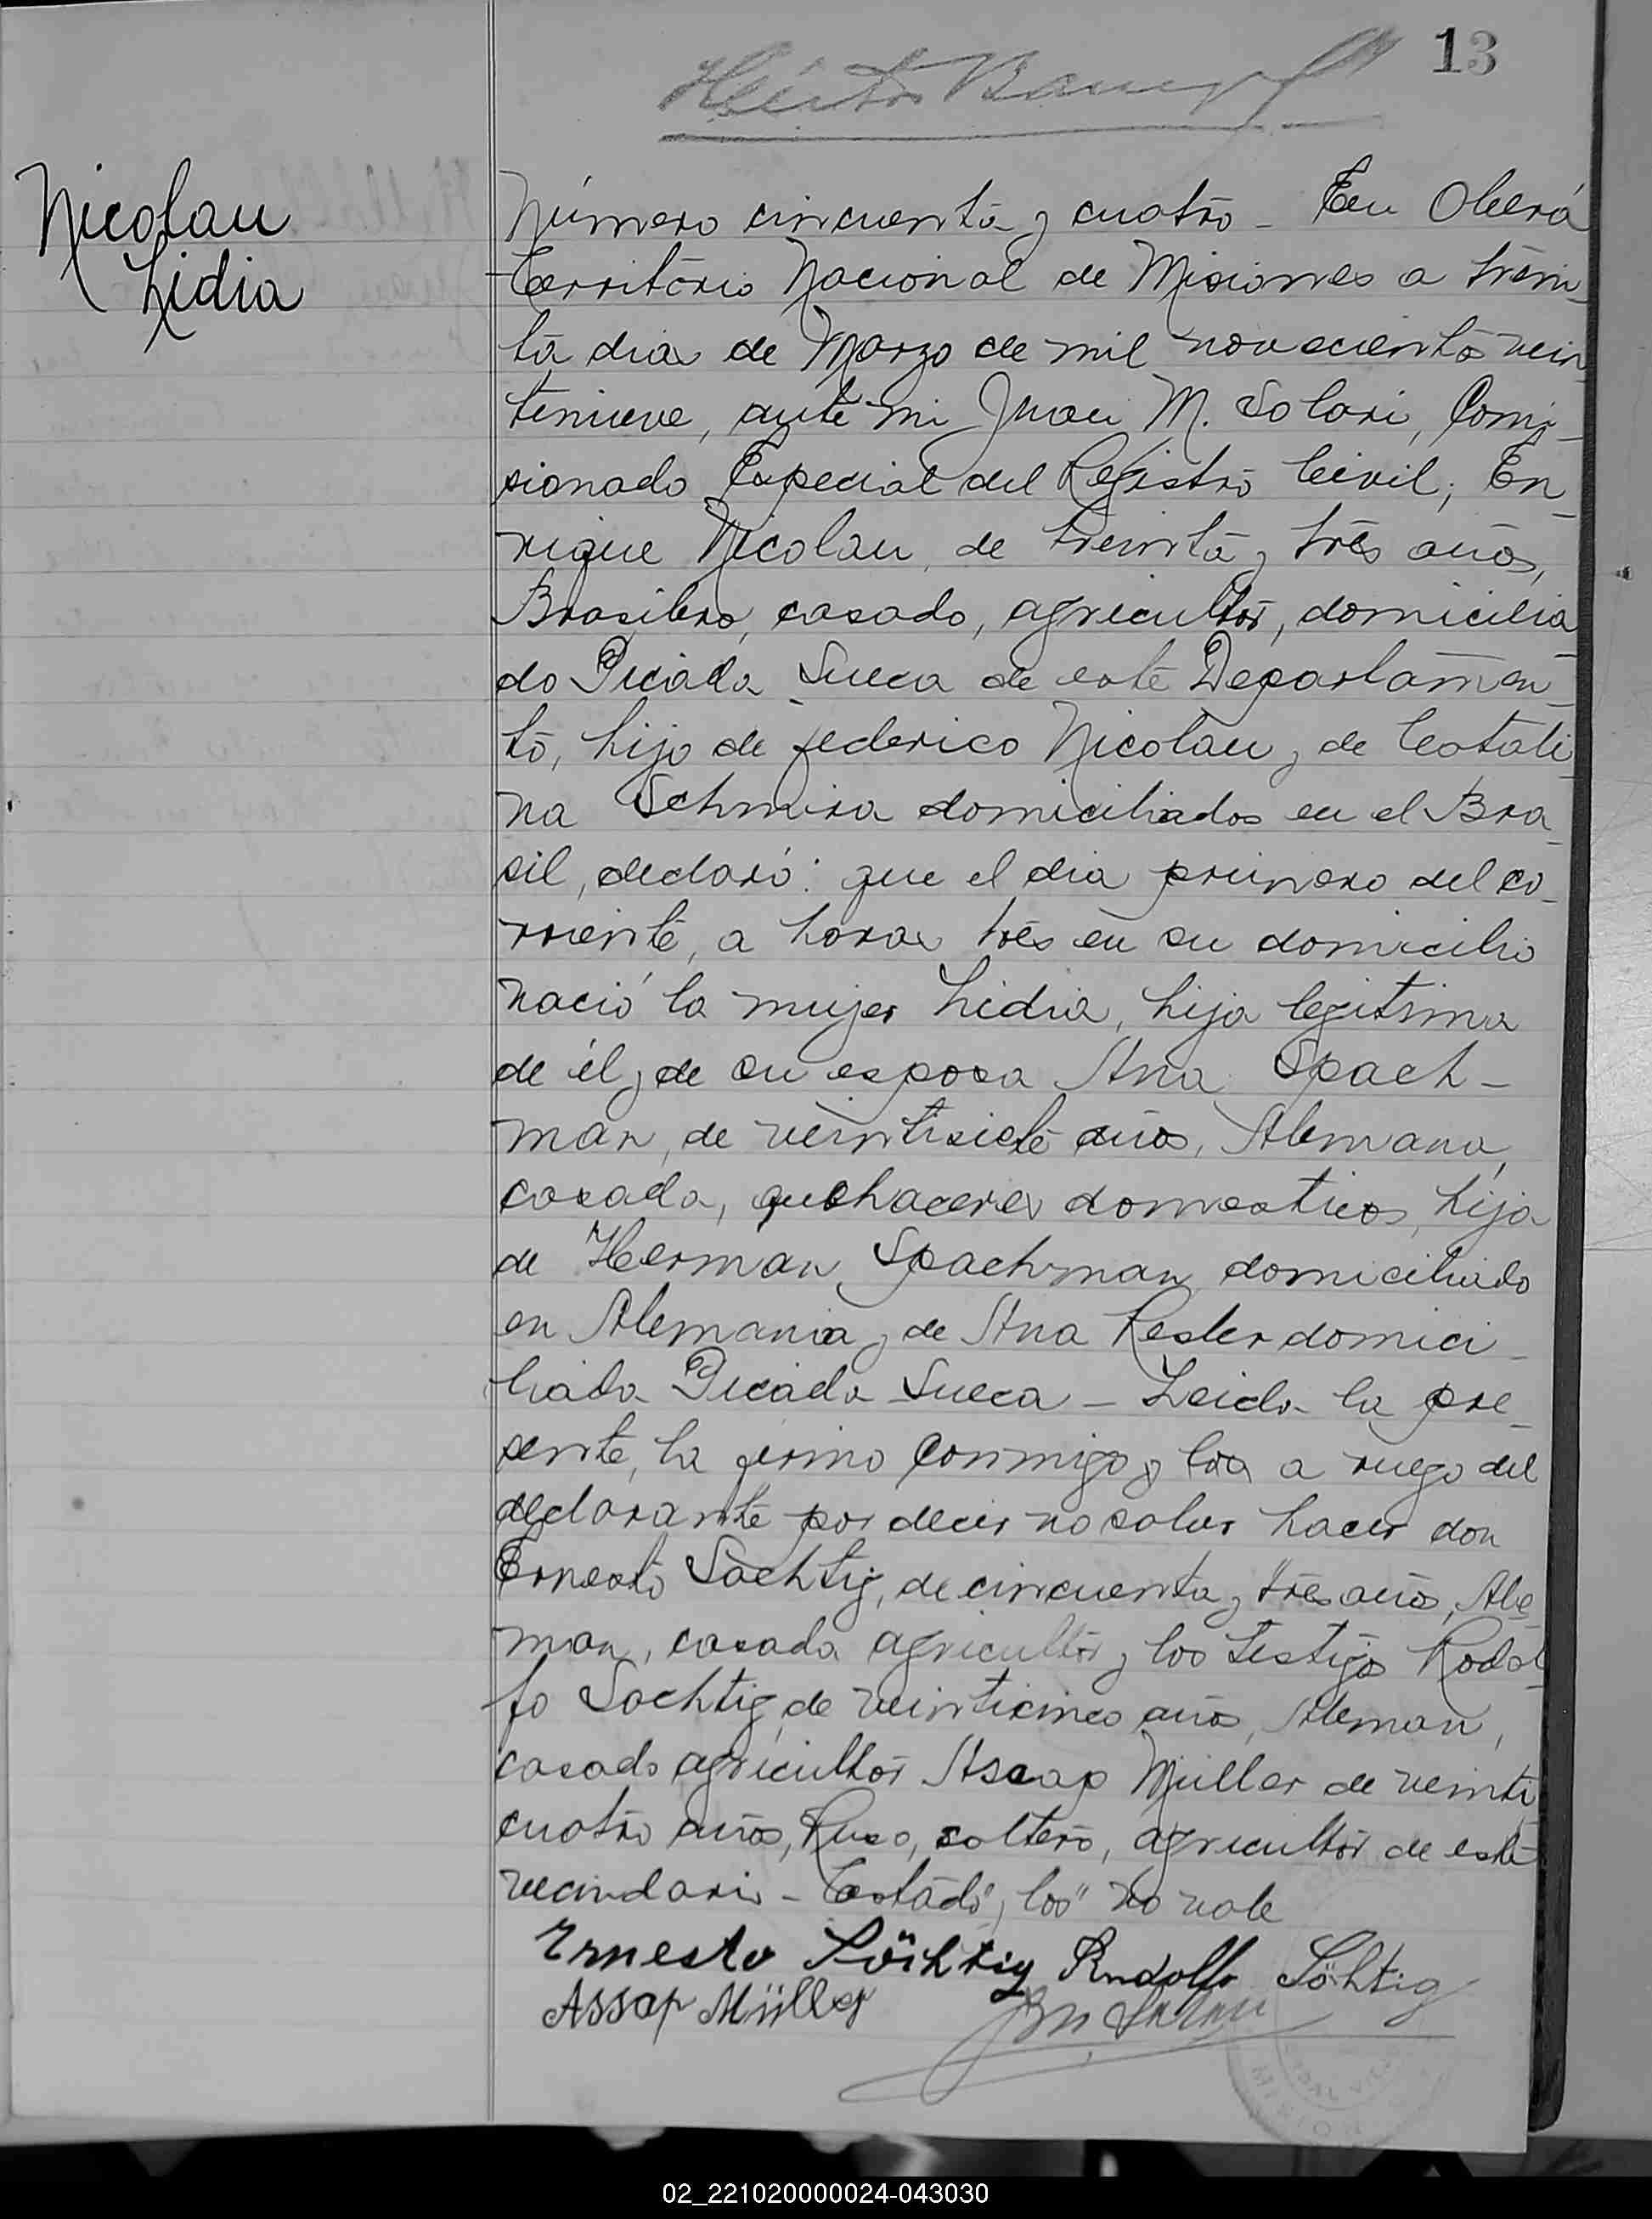 13
Nicolau
Lidia
Número cincuenta y cuatro - En Oberá
Territorio Nacional de Misiones a trein
ta dias de Marzo de mil novecientos vein
tinueve, ante mi Juan M. Solari, Comi-
sionado Especial del Registro Civil; En-
rique Nicolau, de treinta y tres años,
Brasilero, casado, agricultor, domicilia
do Picada Sueca de este Departamen-
to, hijo de federico Nicolau y de Catali
na Schmira domiciliados en el Bra-
sil, declaró: que el dia primero del co-
rriente, a horas tres en su domicilio
nació la mujer Lidia, hija legitima
de él y de su esposa Ana Spach-
man, de veintisiete años, Alemana,
casada, quehaceres domesticos, hija
de Herman Spachman domiciliado
en Alemania y de Ana Resler domici-
liada Picada Sueca - Leida la pre-
sente, la firmo conmigo y los a ruego del
declarante por decir no saber hacer don
Ernesto Sochtig, de cincuenta y tres años, Ale-
man, casado agricultor y los testigos Rodol
fo Sochtig de veinticinco años, Aleman,
casado agricultor Assap Müller de veinti
cuatro años, Ruso, soltero, agricultor de este
vecindario - Testado "y los" no vale
Ernesto Söchtig Rudolfo Söhtig
Assap Müller
02_221020000024-043030